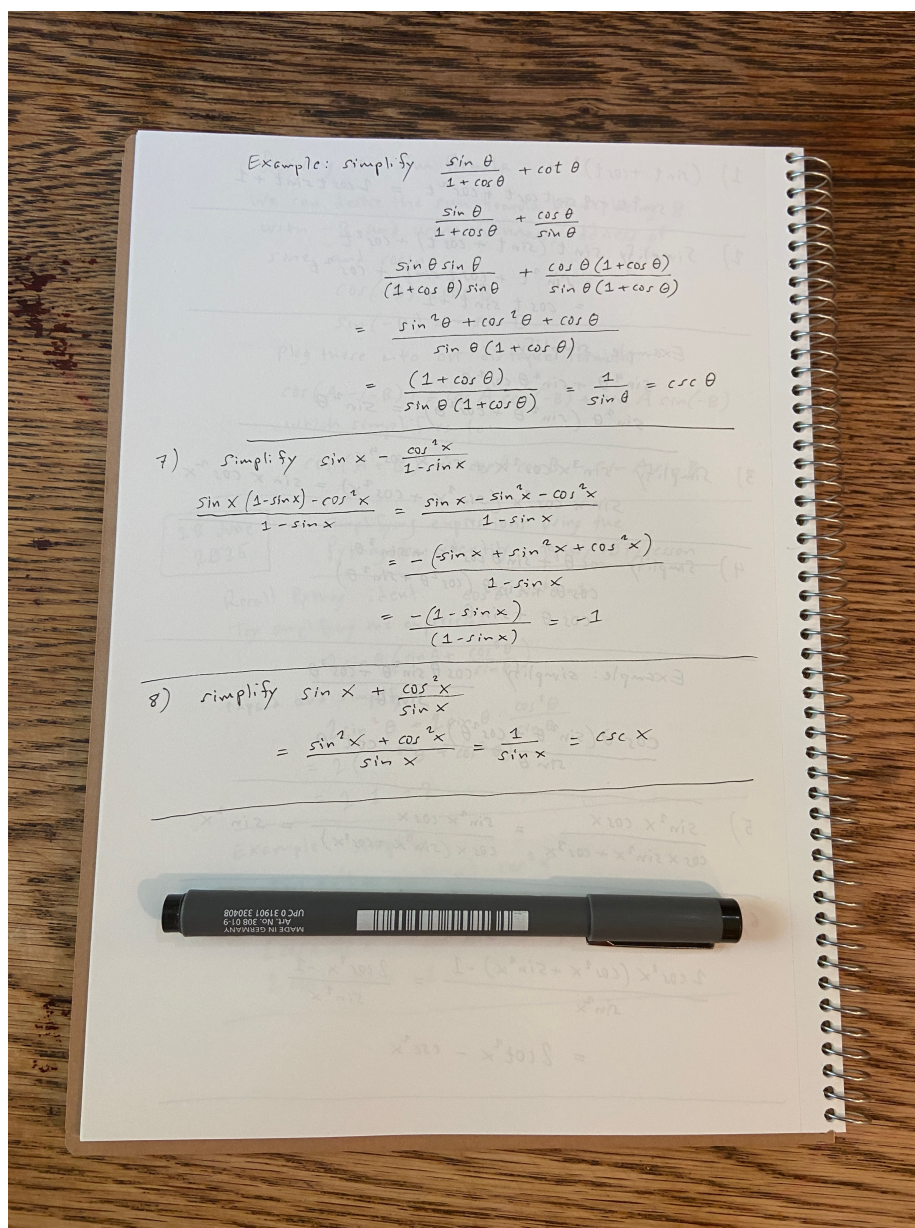 Example: simplify sin θ / (1 + cos θ) + cot θ
sin θ / (1 + cos θ) + cos θ / sin θ
sin θ sin θ / ((1 + cos θ) sin θ) + cos θ (1 + cos θ) / (sin θ (1 + cos θ))
= (sin²θ + cos²θ + cos θ) / (sin θ (1 + cos θ))
= (1 + cos θ) / (sin θ (1 + cos θ)) 1 / sin θ = csc θ
7) simplify sin x - cos²x / (1 - sin x)
(sin x (1 - sin x) - cos²x) / (1 - sin x) = (sin x - sin²x - cos²x) / (1 - sin x)
= -(-sin x + sin²x + cos²x) / (1 - sin x)
= -(1 - sin x) / (1 - sin x) = -1
8) simplify sin x + cos²x / sin x
= (sin²x + cos²x) / sin x = 1 / sin x = csc x
MADE IN GERMANY
Art. No. 308 01-9
UPC 0 31901 330408